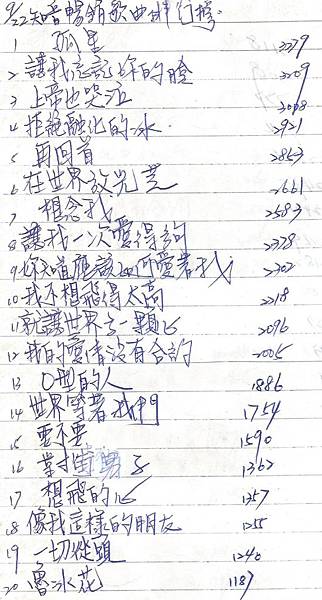 9/22知音暢銷歌曲排行榜
1 孤星 2779
2 讓我忘記你的臉 2709
3 上帝也哭泣 3008
4 拒絕融化的冰 2921
5 再回首 2853
6 在世界放光芒 2661
7 想念我 2583
8 讓我一次愛得夠 2328
9 你知道應該如何愛著我 2302
10 我不想飛得太高 2218
11 就讓世界多一顆心 2096
12 我的愛情沒有合約 2005
13 O型的人 1886
14 世界等著我們 1754
15 要不要 1590
16 單身男子 1362
17 想飛的心 1357
18 像我這樣的朋友 1255
19 一切從頭 1240
20 魯冰花 1187